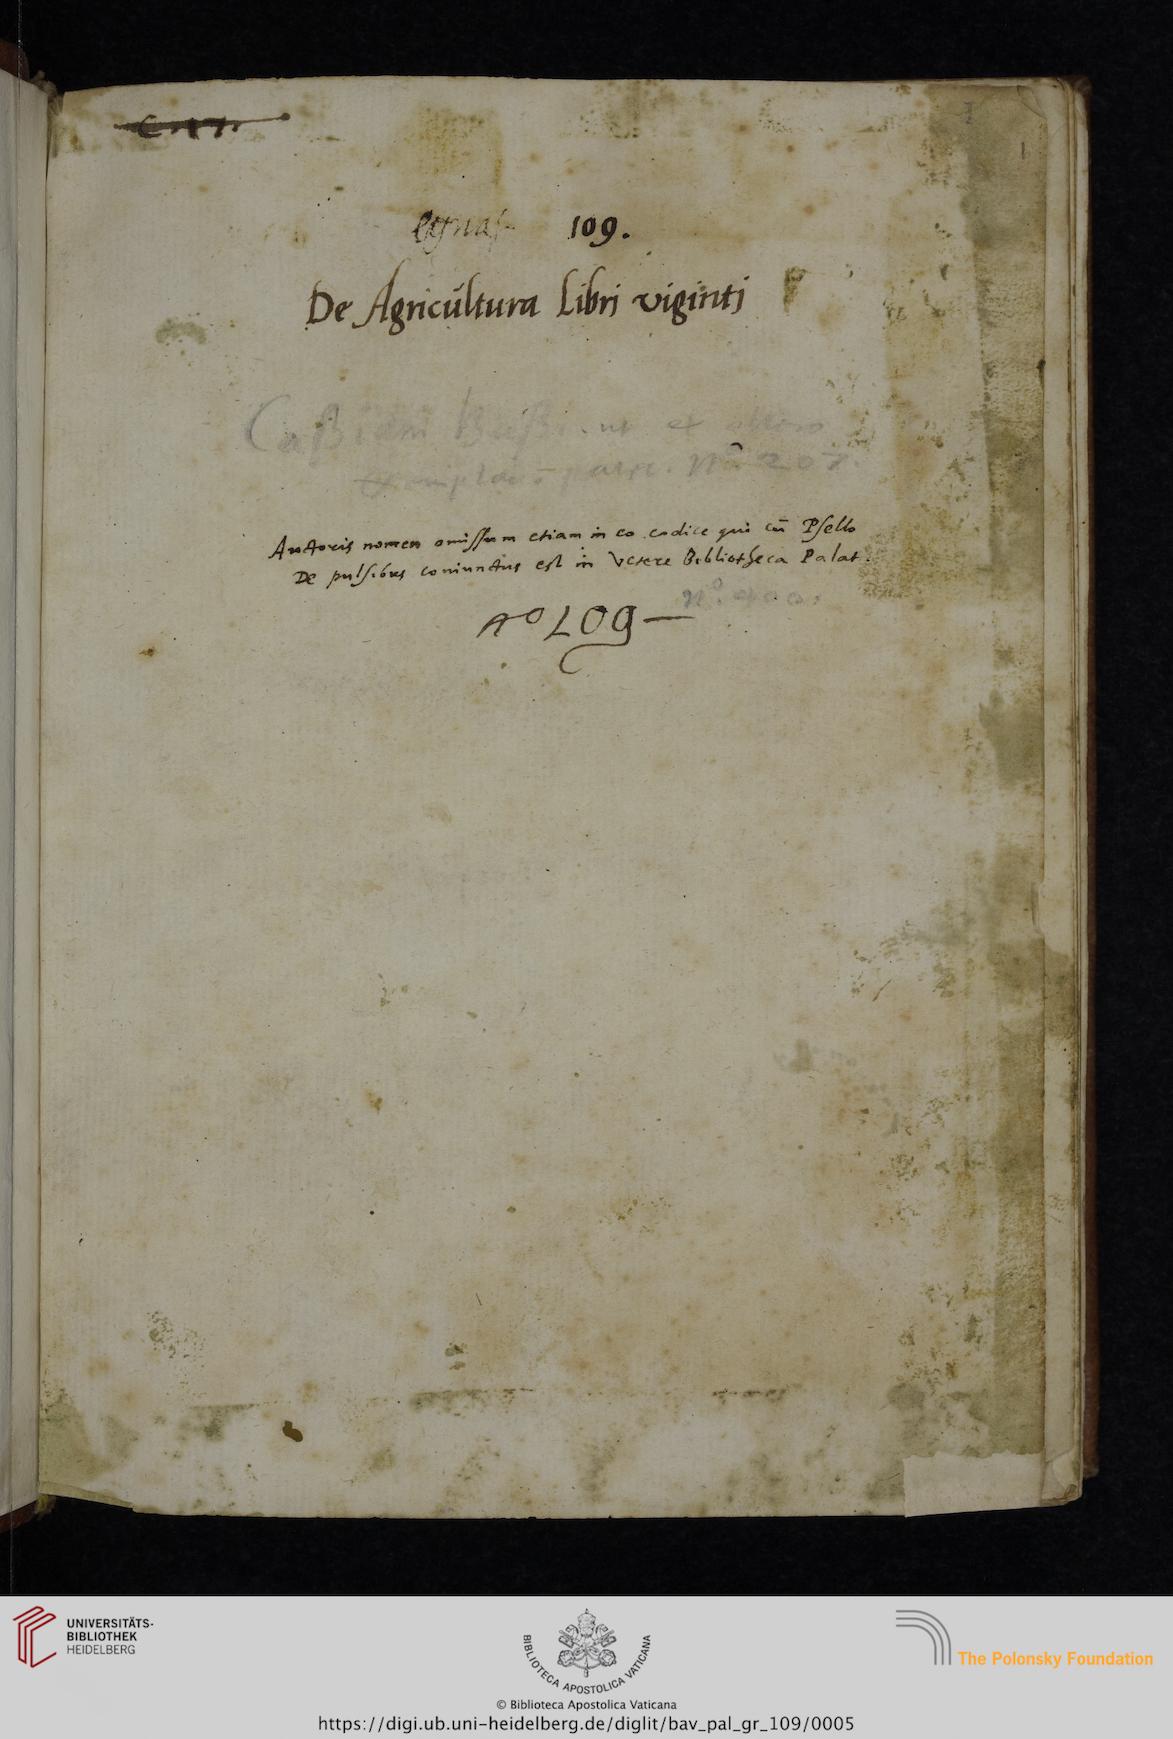 C. 17.
1
109.
De Agricultura Libri viginti
Caßiani Baßi. ut ex altero
exemplari patet. Nº. 207.
Autoris nomen omissum etiam in eo codice qui cū Psello
De pulsibus coniunctus est in Vetere Bibliotheca Palat.
Nº. 400.
nº 109
UNIVERSITÄTS-
BIBLIOTHEK
HEIDELBERG
BIBLIOTECA APOSTOLICA VATICANA
The Polonsky Foundation
© Biblioteca Apostolica Vaticana
https://digi.ub.uni-heidelberg.de/diglit/bav_pal_gr_109/0005